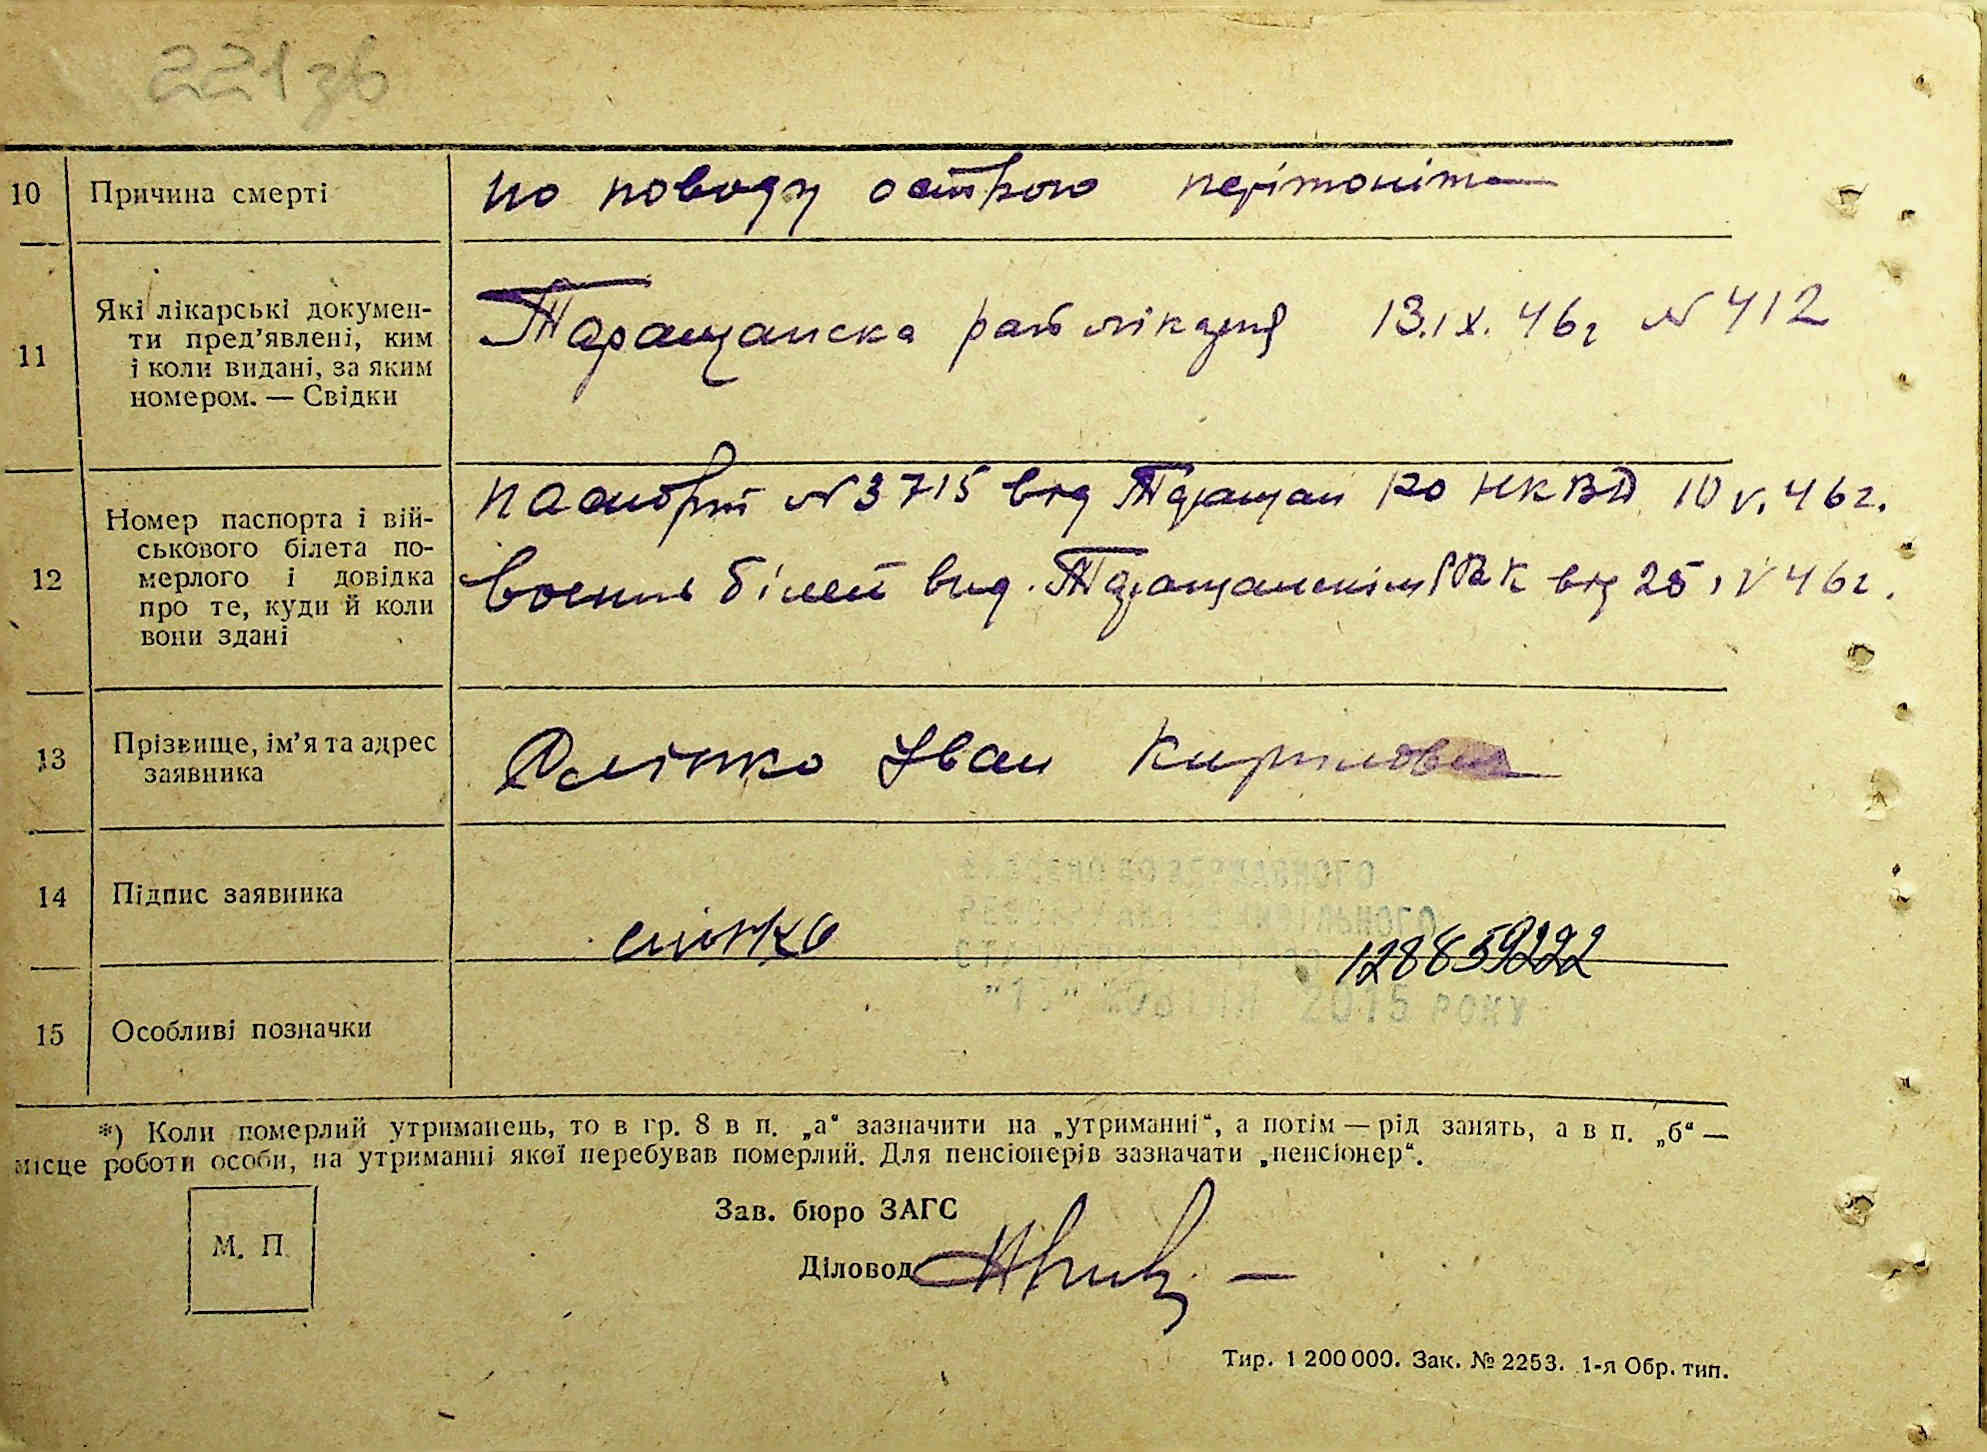 221зв
10 Причина смерті по поводу острого перітоніта
11 Які лікарські докумен-
ти пред’явлені, ким
і коли видані, за яким
номером. — Свідки
Таращанска рай лікарня 13.IX.46г N 412
12 Номер паспорта і вій-
ськового білета по-
мерлого і довідка
про те, куди й коли
вони здані
паспорт N 3715 від Таращан РО НКВД 10 V.46г.
билет вид. РВК від 25 IV 46г.
13 Прізвище, ім’я та адрес
заявника
Іван Кирилович
14 Підпис заявника
ДЕРЖАВНОГО
128859222
2015 РОКУ
15 Особливі позначки
*) Коли померлий утриманець, то в гр. 8 в п. „а“ зазначити на „утриманні“, а потім — рід занять, а в п. „б“ —
місце роботи особи, на утриманні якої перебував померлий. Для пенсіонерів зазначати „пенсіонер“.
М. П.
Зав. бюро ЗАГС
Діловод
Тир. 1 200 000. Зак. № 2253. 1-я Обр. тип.